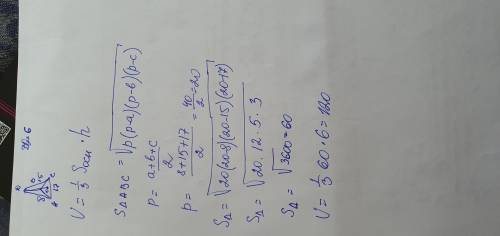 h = 6
V = 1/3 Sосн · h
S△ABC = √p(p-a)(p-b)(p-c)
p = a+b+c / 2
p = 8+15+17 / 2 = 40 / 2 = 20
S△ = √20(20-8)(20-15)(20-17)
S△ = √20·12·5·3
S△ = √3600 = 60
V = 1/3 60·6 = 120